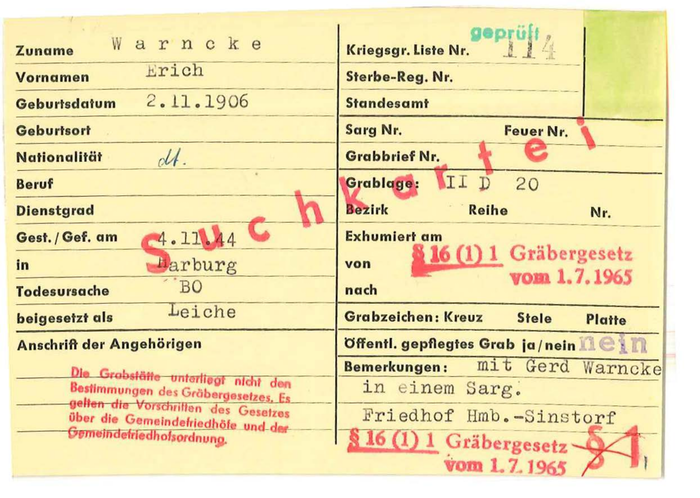 Zuname W a r n c k e
Vornamen Erich
Geburtsdatum 2.11.1906
Geburtsort
Nationalität dt.
Beruf
Dienstgrad
Gest./Gef. am 4.11.44
in Harburg
Todesursache BO
beigesetzt als Leiche
Anschrift der Angehörigen
Die Grabstätte unterliegt nicht den
Bestimmungen des Gräbergesetzes. Es
gelten die Vorschriften des Gesetzes
über die Gemeindefriedhöfe und der
Gemeindefriedhofsordnung.
Suchkartei
geprüft
Kriegsgr. Liste Nr. 114
Sterbe-Reg. Nr.
Standesamt
Sarg Nr. Feuer Nr.
Grabbrief Nr.
Grablage: II D 20
Bezirk Reihe Nr.
Exhumiert am
von
nach
§ 16 (1) 1 Gräbergesetz
vom 1.7.1965
Grabzeichen: Kreuz Stele Platte
Öffentl. gepflegtes Grab ja/nein nein
Bemerkungen: mit Gerd Warncke
in einem Sarg.
Friedhof Hmb.-Sinstorf
§ 16 (1) 1 Gräbergesetz
vom 1.7.1965
§ 1